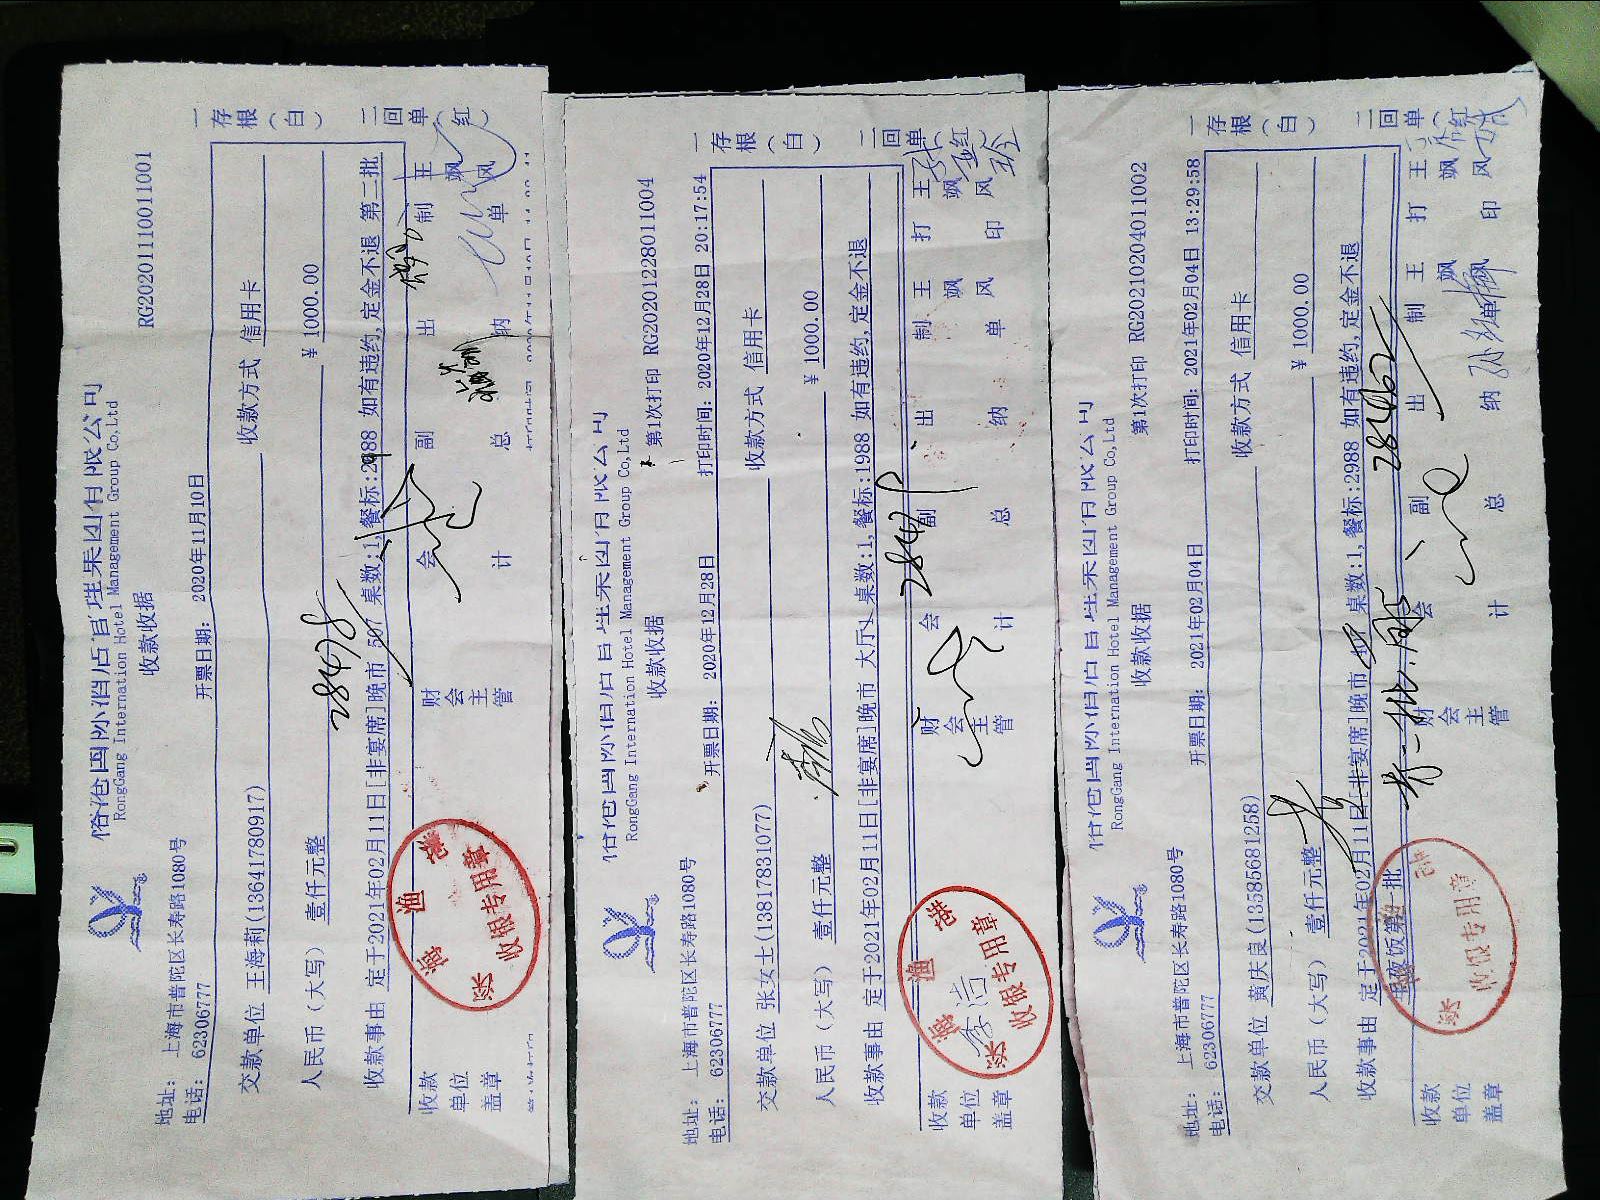 RongGang International Hotel Management Group Co,Ltd
收款收据
RG20201110011001
地址： 上海市普陀区长寿路1080号
电话： 62306777
开票日期： 2020年11月10日
交款单位 王海莉(13641780917)
收款方式 信用卡
人民币（大写） 壹仟元整
¥ 1000.00
28478
收款事由 定于2021年02月11日[非宴席]晚市 507 桌数:1,餐标:2988 如有违约,定金不退 第二批
收款单位盖章
财会主管
会计
副总
出纳
制单
王飒风
一存根（白）
二回单（红）
海渔
收银专用章
RongGang International Hotel Management Group Co,Ltd
收款收据
第1次打印 RG20201228011004
地址： 上海市普陀区长寿路1080号
电话： 62306777
开票日期： 2020年12月28日
打印时间: 2020年12月28日 20:17:54
交款单位 张女士(13817831077)
收款方式 信用卡
人民币（大写） 壹仟元整
¥ 1000.00
收款事由 定于2021年02月11日[非宴席]晚市 大厅 桌数:1,餐标:1988 如有违约,定金不退
收款单位盖章
财会主管
会计
副总
出纳
制单
王飒风
打印
王飒风
一存根（白）
二回单（红）
海渔港
收银专用章
RongGang International Hotel Management Group Co,Ltd
收款收据
第1次打印 RG20210204011002
地址： 上海市普陀区长寿路1080号
电话： 62306777
开票日期： 2021年02月04日
打印时间: 2021年02月04日 13:29:58
交款单位 黄庆良(13585681258)
收款方式 信用卡
人民币（大写） 壹仟元整
¥ 1000.00
收款事由 定于2021年02月11日[非宴席]晚市 桌数:1,餐标:2988 如有违约,定金不退
年夜饭第一批
28462
收款单位盖章
财会主管
会计
副总
出纳
制单
王飒风
打印
王飒风
一存根（白）
二回单（红）
收银专用章